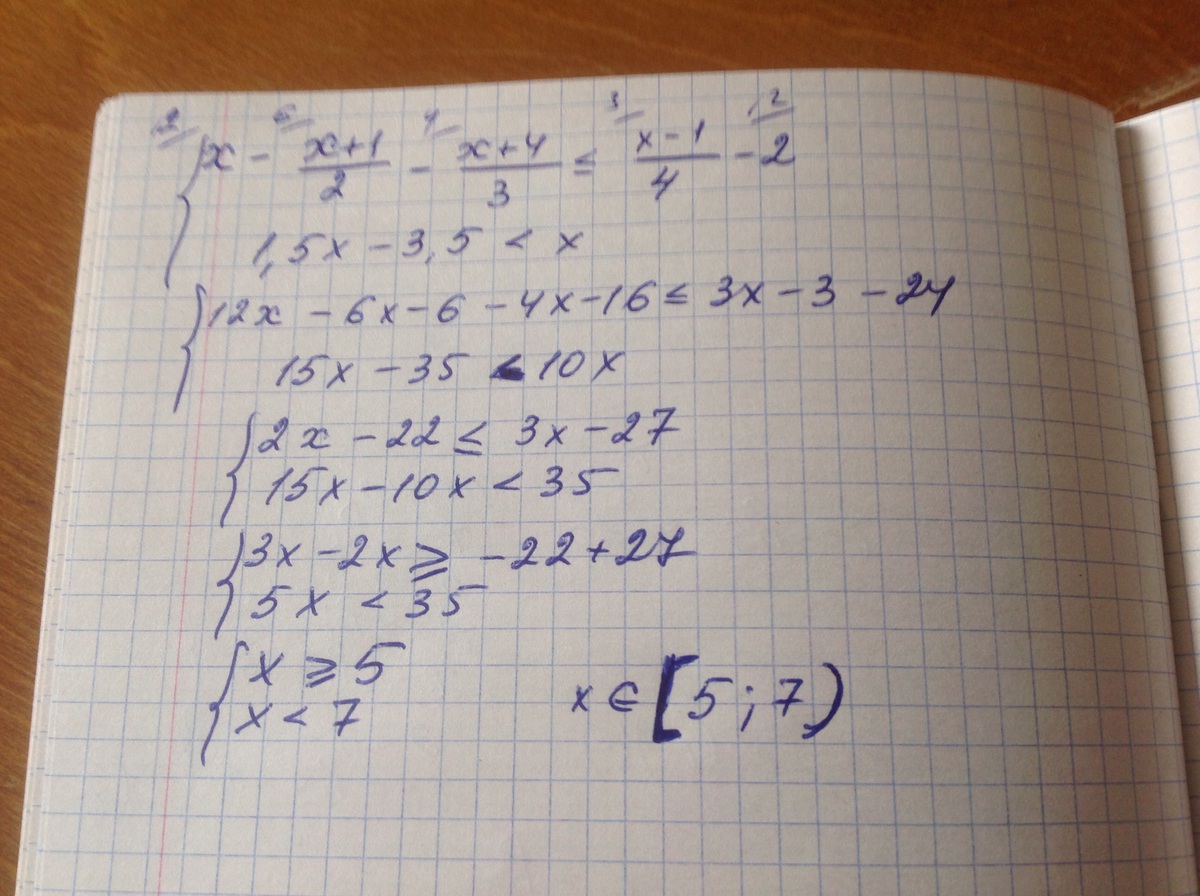 12 6 4 3 12
{ x - (x+1)/2 - (x+4)/3 ≤ (x-1)/4 - 2
1,5x - 3,5 < x
{ 12x - 6x - 6 - 4x - 16 ≤ 3x - 3 - 24
15x - 35 < 10x
{ 2x - 22 ≤ 3x - 27
15x - 10x < 35
{ 3x - 2x ≥ -22 + 27
5x < 35
{ x ≥ 5
x < 7 x ∈ [5; 7)